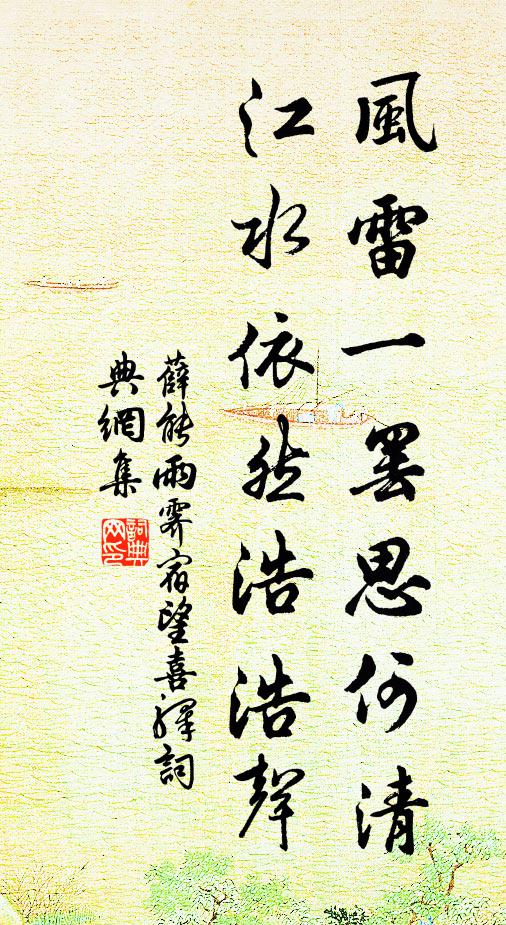 風雷一罢思何清
江水依然浩浩聲
薛能雨霽宿望喜驛詞
典網集
詞典网印